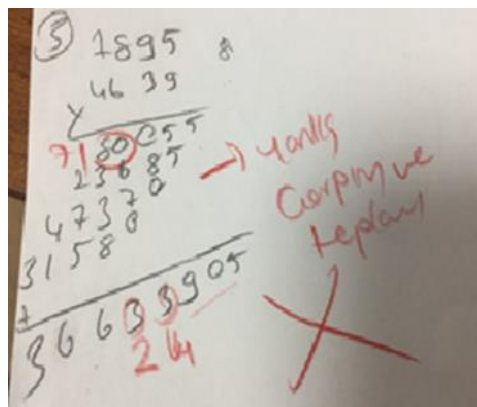 5 7895
4639
x
71 80055
23685
47370
31580
+
36633905
24
→ yanlış
Çarpma ve
toplam